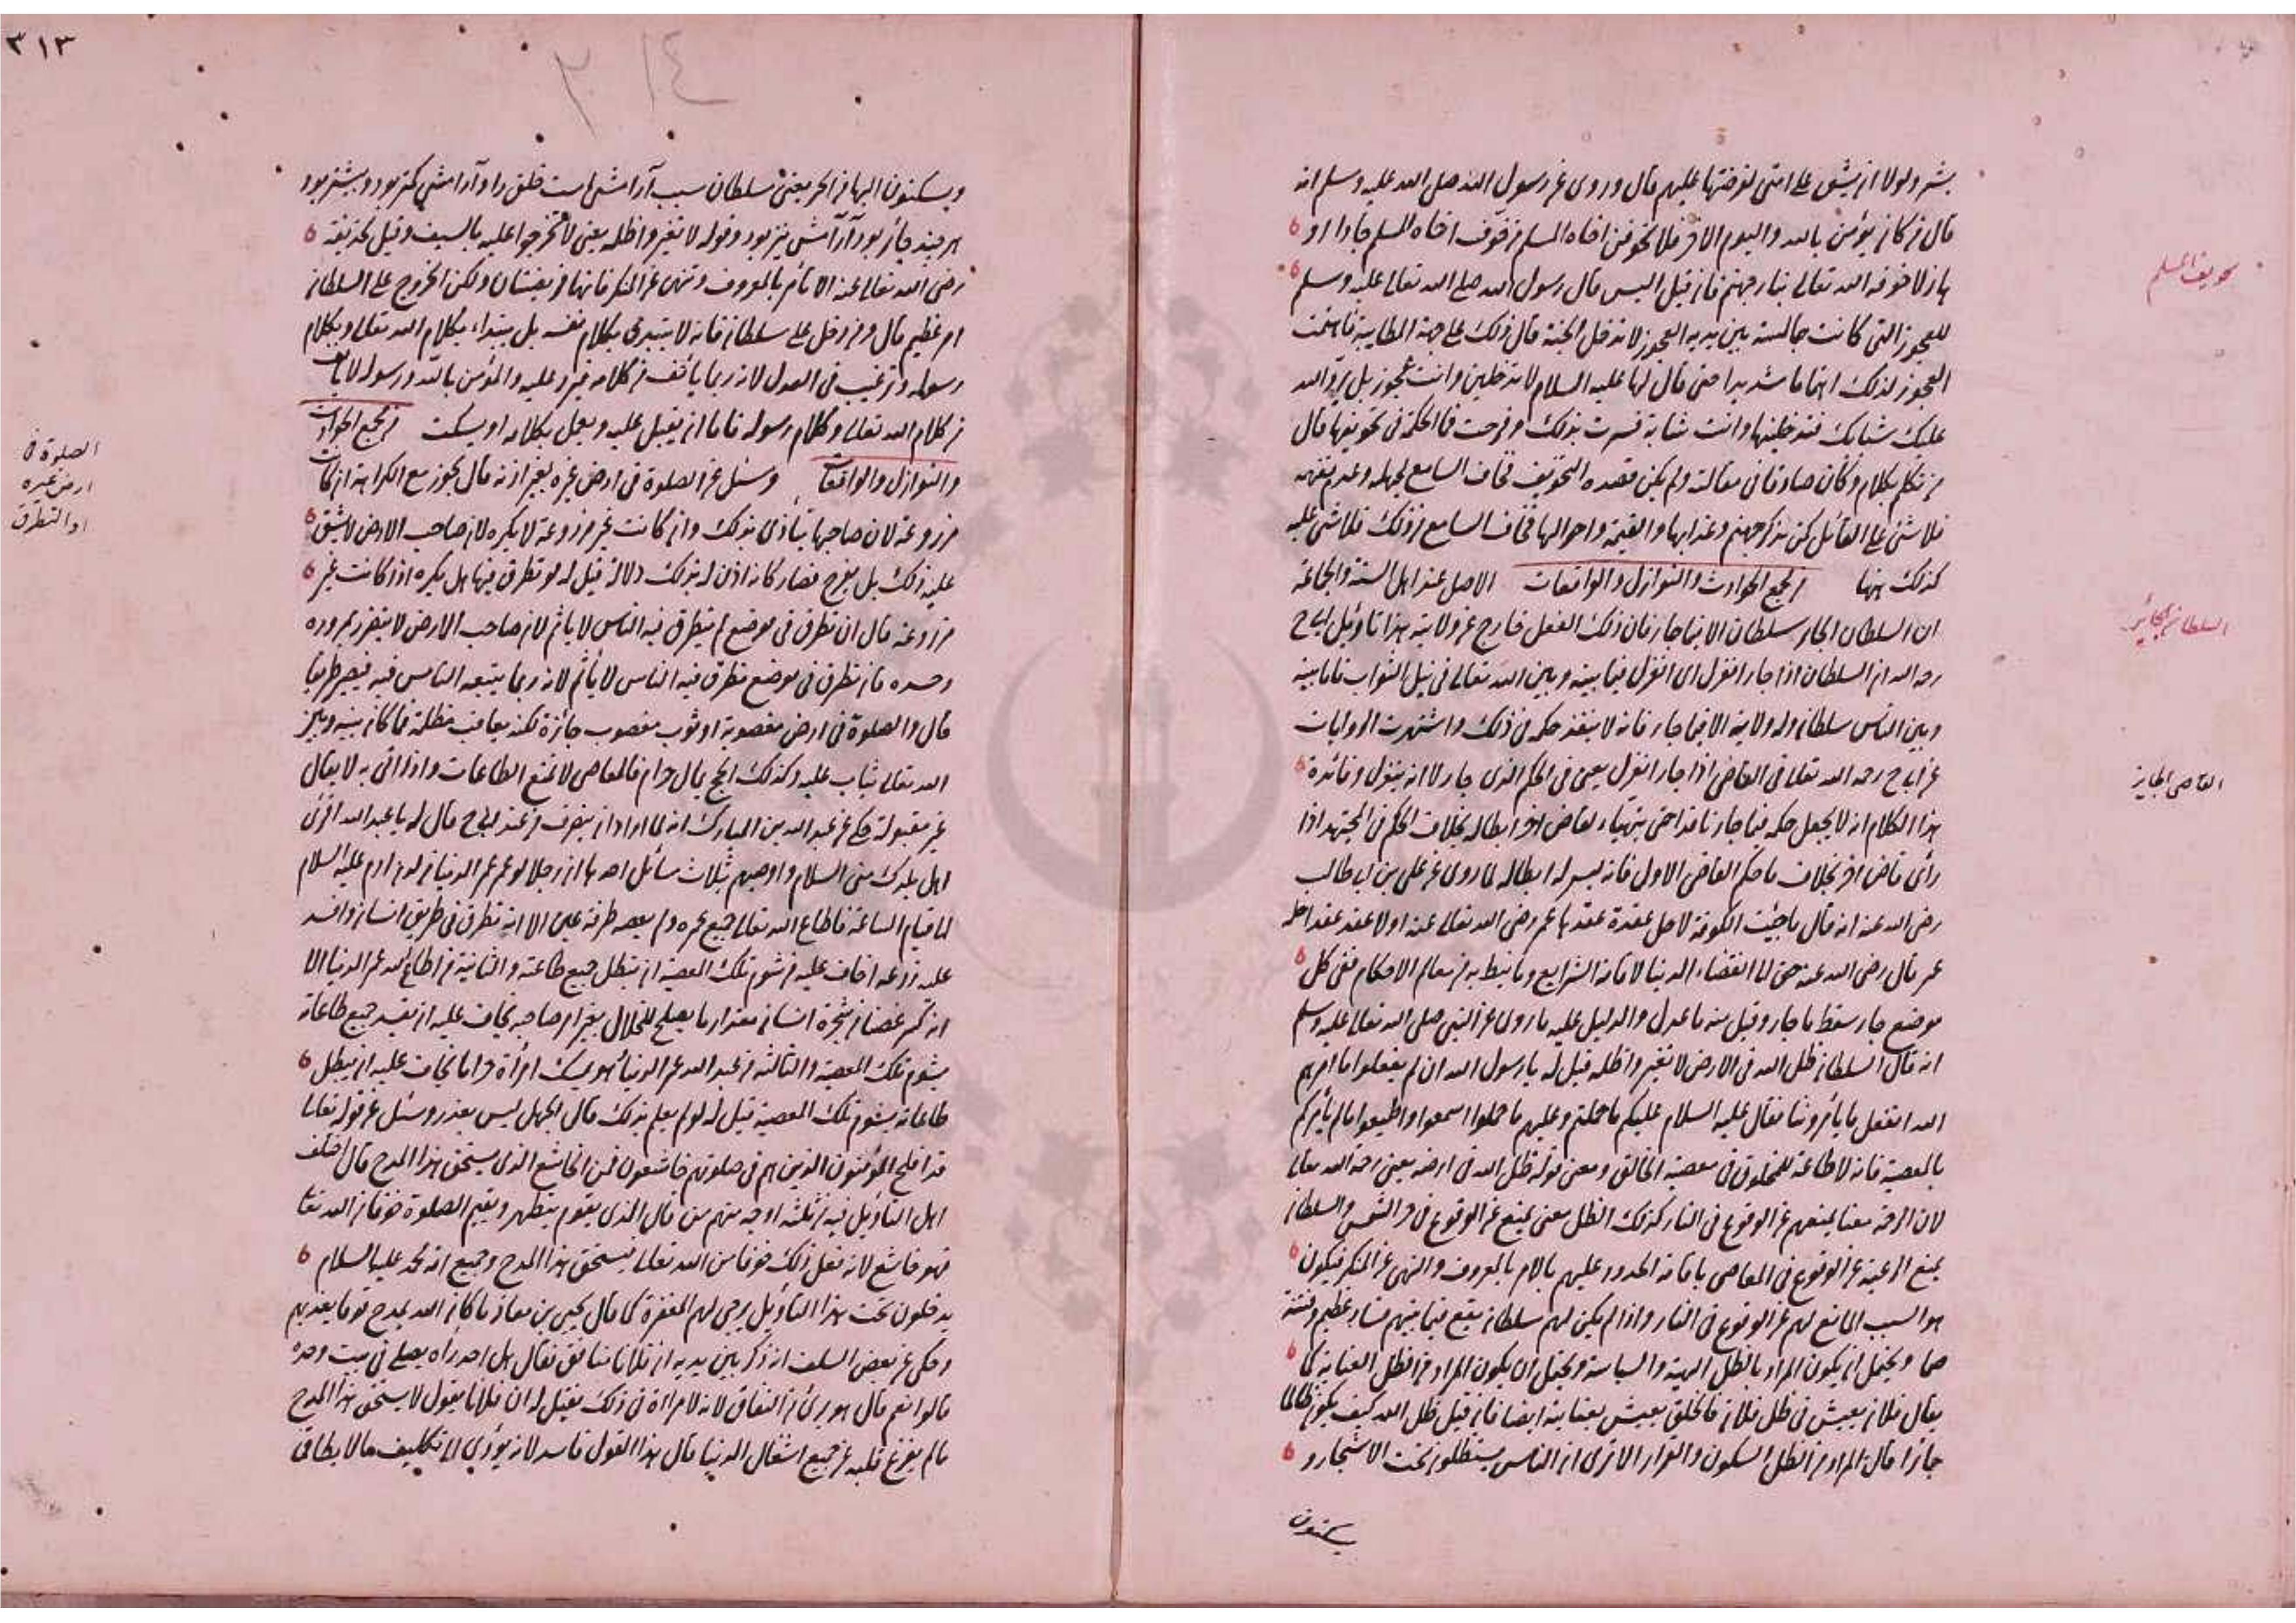 بشر ولولا ان يشق على امتى لفرضتها عليهم قال وروى عن رسول الله صلى الله عليه وسلم انه
قال من كان يؤمن بالله واليوم الاخر فلا يخوفن اخاه المسلم من خوف اخاه المسلم جادا او
هازلا خوفه الله تعالى بنار جهنم فان قيل اليس قال رسول الله صلى الله تعالى عليه وسلم
للعجوز التى كانت جالسة بين يديه العجوز لا تدخل الجنة قال ذلك على جهة المطايبة فاهتمت
العجوز لذلك اهتماما شديدا حتى قال لها عليه السلام لا تدخلين وانت عجوز بل يرد الله
عليك شبابك فتدخلينها وانت شابة فسرت بذلك وفرحت فما الحكمة فى تخويفها قال
من تكلم بكلام وكان صادقا فى مقالته ولم يكن قصده التخويف فخاف السامع لجهله وعدم تفهمه
فلا شئ على القائل كمن يذكر جهنم وعذابها والقيمة واحوالها فخاف السامع من ذلك فلا شئ عليه
كذلك ههنا من جمع الحوادث والنوازل والواقعات الاصل عند اهل السنة والجماعة
ان السلطان الجائر سلطان الا فيما جار فان ذلك الفعل خارج عن ولايته هذا تاويل ابى ح
رحه الله ان السلطان اذا جار انعزل اى انعزل فيما بينه وبين الله تعالى فى نيل الثواب فاما بينه
وبين الناس سلطان وله ولاية الا فيما جار فانه لا ينفذ حكمه فى ذلك واشتهرت الروايات
عن ابى ح رحه الله تعالى فى القاضى اذا جار انعزل يعنى فى الحكم الذى جار لا انه ينعزل وفائدة
هذا الكلام انه لا يجعل حكمه فيما جار نافذا حتى يتهياء لقاض اخر ابطاله بخلاف الحكم فى المجتهد اذا
رأى قاض اخر بخلاف ما حكم القاضى الاول فانه ليس له ابطاله لما روى عن على بن ابى طالب
رضى الله عنه انه قال ما جئت الكوفة لاحل عقدة عقدها عمر رضى الله تعالى عنه اولا عقد عقدا حله
عمر قال رضى الله عنه حتى لما القضاء الدنيا لاقامة الشرايع وما نيط به من معالم الاحكام ففى كل
موضع جار سقط ما جار وقبل منه ما عدل والدليل عليه ما روى عن النبى صلى الله تعالى عليه وسلم
انه قال السلطان ظل الله فى الارض لا تغيروا ظله قيل له يا رسول الله ان لم يفعلوا ما امرهم
الله انفعل ما يأمروننا فقال عليه السلام عليكم ما حملتم وعليهم ما حملوا اسمعوا واطيعوا ما لم يأمركم
بالمعصية فانه لا طاعة للمخلوق فى معصية الخالق ومعنى قوله ظل الله فى ارضه يعنى رحمة الله تعالى
لان الرحمة معنا يمنعهم عن الوقوع فى النار كذلك الظل معنى يمنع عن الوقوع فى حر الشمس والسلطان
يمنع الرعية عن الوقوع فى المعاصى باقامة الحدود عليهم بالامر بالمعروف والنهى عن المنكر فيكون
هو السبب المانع لهم عن الوقوع فى النار واذا لم يكن لهم سلطان يقع فيما بينهم فساد عظيم وفتنة
صما ويحتمل ان يكون المراد بالظل الهيبة والسياسة ويحتمل ان يكون المراد من الظل العناية كما
يقال فلان يعيش فى ظل فلان فالخلق يعيش بعنايته ايضا فان قيل ظل الله كيف يكون ظالما
جائرا قال المراد من الظل السكون والقرار الا ترى ان الناس يستظلون تحت الاشجار و
يسكنون
تخويف المسلم
السلطان الجائر
القاضى الجاير
٣١٣
٣١٤
ويسكنون اليها من الحر يعنى سلطان سبب آرامش است خلق را و آرامش كمتر بود و بيشتر بود
هر چند جائر بود آرامش نيز بود وقوله لا تغيروا ظله يعنى لا تخرجوا عليه بالسيف وقيل لحذيفة
رضى الله تعالى عنه الا تأمر بالمعروف وتنهى عن المنكر فانهما فريضتان ولكن الخروج على السلطان
امر عظيم قال ومن دخل على سلطان فانه لا يبتدئ بكلام نفسه بل يبتداء بكلام الله تعالى وبكلام
رسوله وترغيب فى العدل لانه ربما يأنف من كلامه فيرد عليه والمؤمن بالله ورسوله لا يأنف
من كلام الله تعالى وكلام رسوله فاما ان يقبل عليه ويعمل بكلامه او يسكت من جمع الحوادث
والنوازل والواقعات وسئل عن الصلوة فى ارض غيره بغير اذنه قال يجوز مع الكراهة ان كانت
مزروعة لان صاحبها يتأذى بذلك وان كانت غير مزروعة لا يكره لان صاحب الارض لا يشق
عليه ذلك بل يفرح فصار كانه اذن له بذلك دلالة قيل له لو تطرق فيها هل يكره اذا كانت غير
مزروعة قال ان تطرق فى موضع لم يتطرق فيه الناس لا ياثم لان صاحب الارض لا يتضرر بمروره
وحده فان تطرق فى موضع تطرق فيه الناس لا يأثم لانه ربما يتبعه الناس فيه فيصير طريقا
قال والصلوة فى ارض مغصوبة او ثوب مغصوب جائزة لكنه يعاقب بظلمه فما كان بينه وبين
الله تعالى يثاب عليه وكذلك الحج بمال حرام فالمعاصى لا تمنع الطاعات واذا اتى به لا يقال
غير مقبولة حكى عن عبد الله بن المبارك انه لما اراد ان ينصرف من عند ابى ح قال له يا عبد الله اقرئ
اهل بلدك منى السلام واوصهم بثلاث مسائل احدها ان رجلا لو عمر عمر الدنيا من لدن ادم عليه السلام
الى قيام الساعة فاطاع الله تعالى جميع عمره ولم يعصه طرفة عين الا انه تطرق فى طريق انسان وافسد
عليه زرعه اخاف عليه من شوم تلك المعصية ان يبطل جميع طاعته والثانية من اطاع الله عمر الدنيا الا
انه كسر غصنا من شجرة انسان مقدار ما يصلح للخلال بغير امر صاحبه يخاف عليه ان يفسد جميع طاعاته
بشوم تلك المعصية والثالثة من عبد الله عمر الدنيا فهو يمسك امرأة حراما يخاف عليه ان يبطل
طاعاته بشوم تلك المعصية قيل له لو لم يعلم بذلك قال الجهل ليس بعذر وسئل عن قوله تعالى
قد افلح المؤمنون الذين هم فى صلوتهم خاشعون فمن الخاشع الذى يستحق هذا المدح قال اختلف
اهل التاويل فيه من ثلثة اوجه منهم من قال الذى يقوم يتطهر ويقيم الصلوة خوفا من الله تعا
فهو خاشع لانه فعل ذلك خوفا من الله تعالى يستحق هذا المدح وجميع امة محمد عليه السلام
يدخلون تحت هذا التأويل يرجى لهم المغفرة كما قال يحيى بن معاذ ما كان الله يمدح قوما يعذبهم
وحكى عن بعض السلف انه ذكر بين يديه ان فلانا منافق فقال هل احد رأه يصلى فى بيت وحده
قالوا نعم قال هو برئ من النفاق لانه لا مراأة فى ذلك فقيل له ان فلانا يقول لا يستحق هذا المدح
ما لم يفرغ قلبه عن جميع اشغال الدنيا قال هذا القول فاسد لانه يؤدى الى تكليف ما لا يطاق
الصلوة فى
ارض غيره
او التطرق